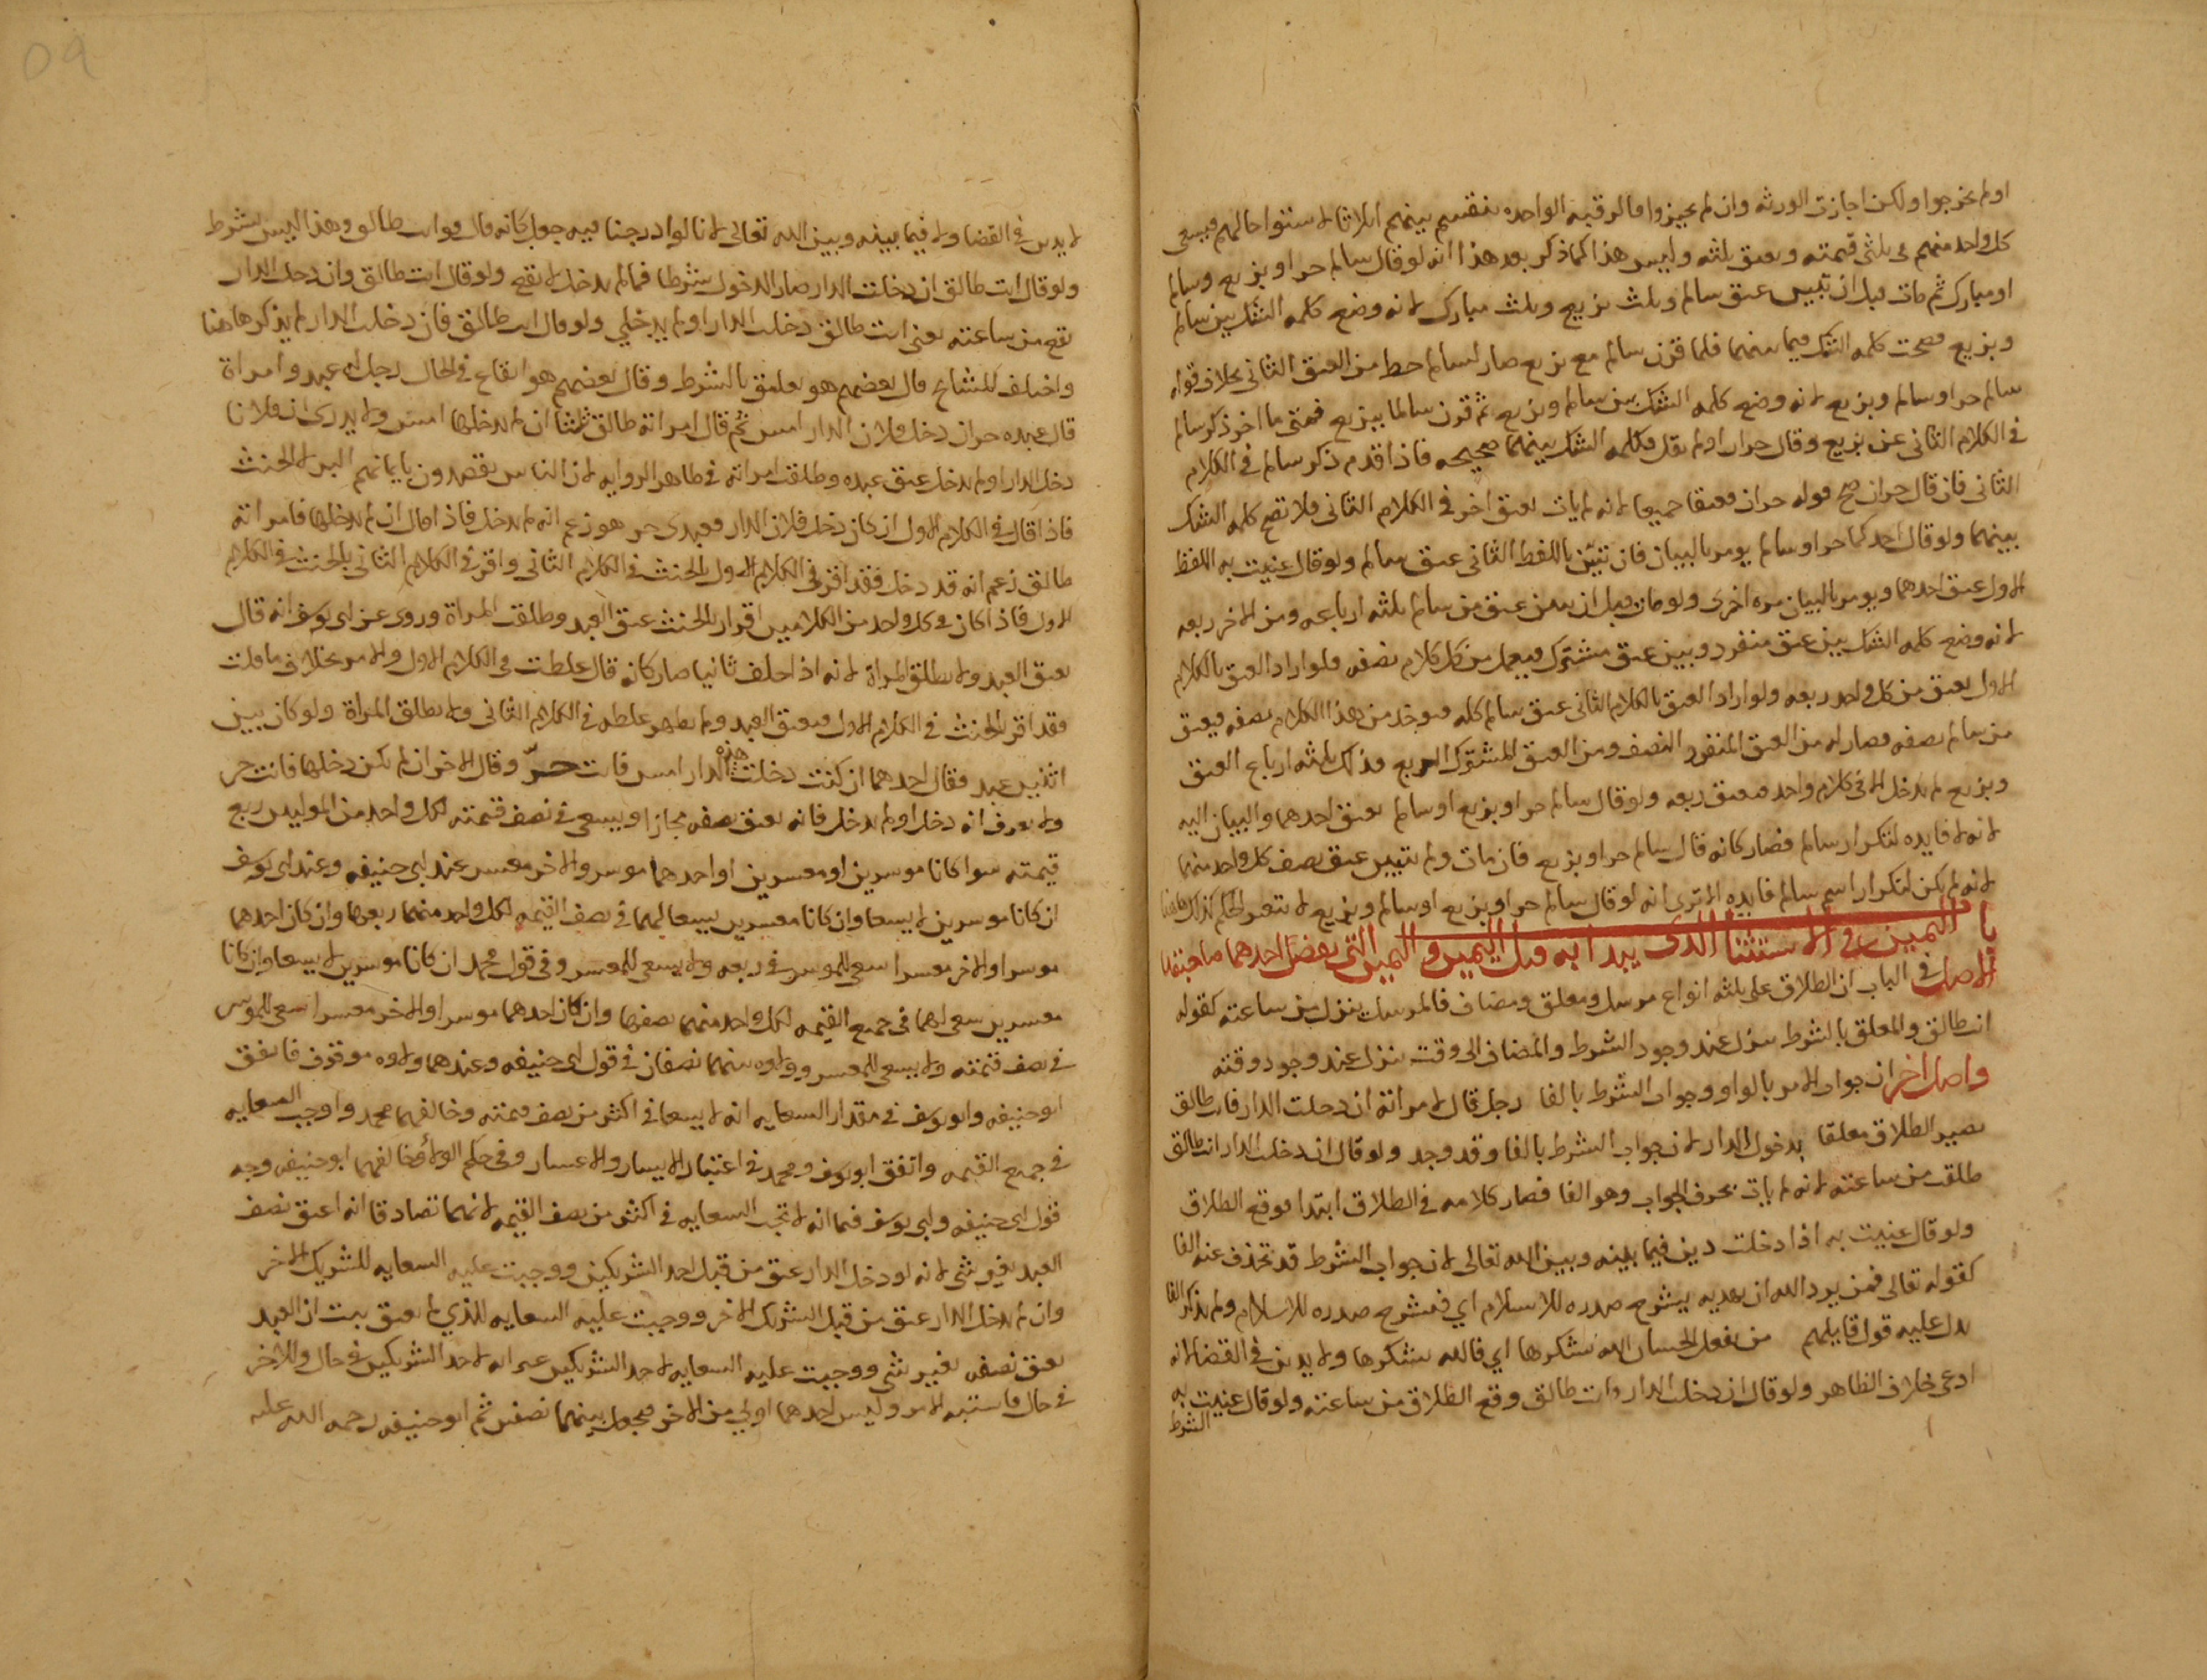 او لم يخرجوا ولكن اجازت الورثه وان لم يجيزوا فالرقبه الواحده تنقسم بينهم اثلاثا لاستوا حالهم فيسعى
كل واحد منهم فى ثلثى قيمته ويعتق ثلثه وليس هذا كما ذكر بعد هذا انه لو قال سالم حر او بزيع وسالم
او مبارك ثم مات قبل ان يبين عتق سالم وثلث بزيع وثلث مبارك لانه وضع كلمه الشك بين سالم
وبزيع فصحت كلمه الشك فيما بينهما فلما قرن سالم مع بزيع صار لسالم حظ من العتق الثانى بخلاف قوله
سالم حر او سالم وبزيع لانه وضع كلمه الشك بين سالم وبزيع ثم قرن سالما ببزيع فمتى ما اخر ذكر سالم
فى الكلام الثانى عن بزيع وقال حران او لم يقل فكلمه الشك بينهما صحيحه فاذا قدم ذكر سالم فى الكلام
الثانى فان قال حران صح قوله حران فعتقا جميعا لانه لم يات بعتق اخر فى الكلام الثانى فلا تقع كلمه الشك
بينهما ولو قال احدكما حر او سالم يومر بالبيان فان تبين باللفظ الثانى عتق سالم ولو قال عنيت به اللفظ
الاول عتق احدهما ويومر بالبيان مره اخرى ولو مات قبل ان يبين عتق من سالم ثلثه ارباعه ومن الاخر ربعه
لانه وضع كلمه الشك بين عتق منفرد وبين عتق مشترك فيعمل من كل كلام نصفه فلو اراد العتق بالكلام
الاول يعتق من كل واحد ربعه ولو اراد العتق بالكلام الثانى عتق سالم كله فيوخذ من هذا الكلام نصفه فيعتق
من سالم نصفه فصار له من العتق المنفرد النصف ومن العتق المشترك الربع فذلك ثلثه ارباع العتق
وبزيع لم يدخل الا فى كلام واحد فيعتق ربعه ولو قال سالم حر او بزيع او سالم يعتق احدهما والبيان اليه
لانه لا فايده لتكرار سالم فصار كانه قال سالم حر او بزيع فان مات ولم يبين عتق نصف كل واحد منهما
لانه لم يكن لتكرار اسم سالم فايده الا ترى انه لو قال سالم حر او بزيع او سالم وبزيع لا يتغير الحكم كذلك هاهنا
باب اليمين فى الاستثنا الذى يبدا به قبل اليمين واليمين التى ينقض احدهما صاحبتها
الاصل فى الباب ان الطلاق على ثلثه انواع مرسل ومعلق ومضاف فالمرسل ينزل من ساعته كقوله
انت طالق والمعلق بالشرط ينزل عند وجود الشرط والمضاف الى وقت ينزل عند وجود وقته
واصل اخر ان جواب الامر بالواو وجواب الشرط بالفا رجل قال لامراته ان دخلت الدار فانت طالق
يصير الطلاق معلقا بدخول الدار لان جواب الشرط بالفا وقد وجد ولو قال ان دخلت الدار انت طالق
طلقت من ساعته لانه لم يات بحرف الجواب وهو الفا فصار كلامه فى الطلاق ابتدا فوقع الطلاق
ولو قال عنيت به اذا دخلت دين فيما بينه وبين الله تعالى لان جواب الشرط قد تحذف عنه الفا
كقوله تعالى فمن يرد الله ان يهديه يشرح صدره للاسلام اي فيشرح صدره للاسلام ولم يذكر الفا
يدل عليه قول قايلهم من يفعل الحسنات الله يشكرها اي فالله يشكرها ولا يدين فى القضا لانه
ادعى خلاف الظاهر ولو قال ان دخلت الدار وانت طالق وقع الطلاق من ساعته ولو قال عنيت به
الشرط
٥٩
لا يدين فى القضا ولا فيما بينه وبين الله تعالى لانا لو ادرجنا فيه جوابا كانه قال فوانت طالق وهذا ليس بشرط
ولو قال انت طالق ان دخلت الدار صار الدخول شرطا فما لم يدخل لا يقع ولو قال انت طالق وان دخلت الدار
يقع من ساعته يعنى انت طالق دخلت الدار او لم يدخلي ولو قال انت طالق فان دخلت الدار لم يذكر هاهنا
واختلف المشايخ قال بعضهم هو تعليق بالشرط وقال بعضهم هو ايقاع فى الحال رجل له عبد وامراة
قال عبده حر ان دخل فلان الدار امس ثم قال امراته طالق ثلثا ان لم يدخلها امس ولا يدرى ان فلانا
دخل الدار او لم يدخل عتق عبده وطلقت امراته فى ظاهر الروايه لان الناس يقصدون بايمانهم البر لا الحنث
فاذا قال فى الكلام الاول ان كان دخل فلان الدار فعبدى حر هو زعم انه لم يدخل فاذا قال ان لم يدخلها فامراته
طالق زعم انه قد دخل فقد اقر فى الكلام الاول بالحنث فى الكلام الثانى واقر فى الكلام الثانى بالحنث فى الكلام
الاول فاذا كان فى كل واحد من الكلامين اقرار بالحنث عتق العبد وطلقت المراة وروى عن ابى يوسف انه قال
يعتق العبد ولا تطلق المراة لانه اذا حلف ثانيا صار كانه قال غلطت فى الكلام الاول والامر بخلاف ما قلت
فقد اقر بالحنث فى الكلام الاول فيعتق العبد ولم يظهر غلطه فى الكلام الثانى ولا تطلق المراة ولو كان بين
اثنين عبد فقال احدهما ان كنت دخلت هذه الدار امس فانت حر وقال الاخر ان لم تكن دخلها فانت حر
ولا يعرف انه دخل او لم يدخل فانه يعتق نصفه مجازا ويسعى فى نصف قيمته لكل واحد من الموليين ربع
قيمته سوا كانا موسرين او معسرين او احدهما موسر والاخر معسر عند ابى حنيفه وعند ابى يوسف
ان كانا موسرين لا يسعا وان كانا معسرين يسعا لهما فى نصف القيمه لكل واحد منهما ربعها وان كان احدهما
موسرا والاخر معسرا سعى للموسر فى ربعه ولا يسعى للمعسر وفى قول محمد ان كانا موسرين لا يسعا وان كانا
معسرين سعى لهما فى جميع القيمه لكل واحد منهما نصفها وان كان احدهما موسرا والاخر معسرا سعى للموسر
فى نصف قيمته ولا يسعى للمعسر وولاوه بينهما نصفان فى قول ابى حنيفه وعندهما ولاوه موقوف فاتفق
ابو حنيفه وابو يوسف فى مقدار السعايه انه لا يسعا فى اكثر من نصف قيمته وخالفهما محمد واوجب السعايه
فى جميع القيمه واتفق ابو يوسف ومحمد فى اعتبار الايسار والاعسار وفى حكم الولا وخالفهما ابو حنيفه وجه
قول ابى حنيفه وابى يوسف فما انه لا تجب السعايه فى اكثر من نصف القيمه لانهما تصادقا انه اعتق نصف
العبد بغير شى لانه لو دخل الدار عتق من قبل احد الشريكين ووجبت عليه السعايه للشريك الاخر
وان لم يدخل الدار عتق من قبل الشريك الاخر ووجبت عليه السعايه للذي لم يعتق ثبت ان العبد
يعتق نصفه بغير شى ووجبت عليه السعايه لاحد الشريكين غير انه لاحد الشريكين فى حال وللاخر
فى حال فاشتبه الامر وليس احدهما اولى من الاخر فيجعل بينهما نصفين ثم ابو حنيفه رحمه الله عليه